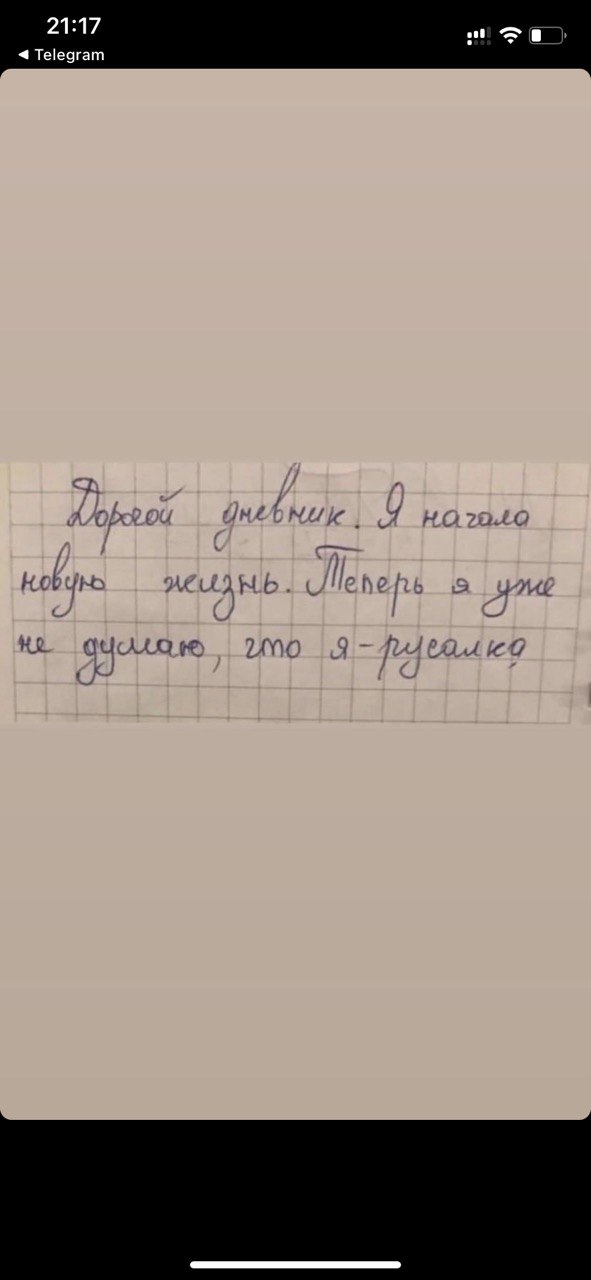 21:17
◀ Telegram
Дорогой дневник. Я начала
новую жизнь. Теперь я уже
не думаю, что я - русалка